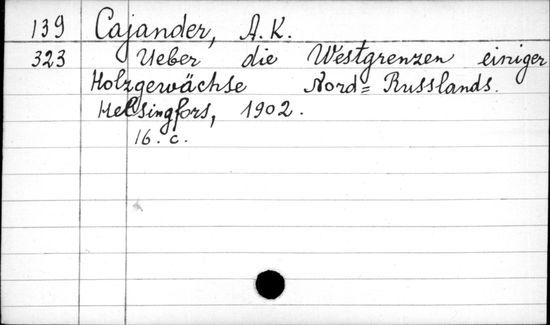 139 Cajander, A. K.
323 Ueber die Westgrenzen einiger
Holzgewächse Nord= Russlands.
Helsingfors, 1902.
16. c.